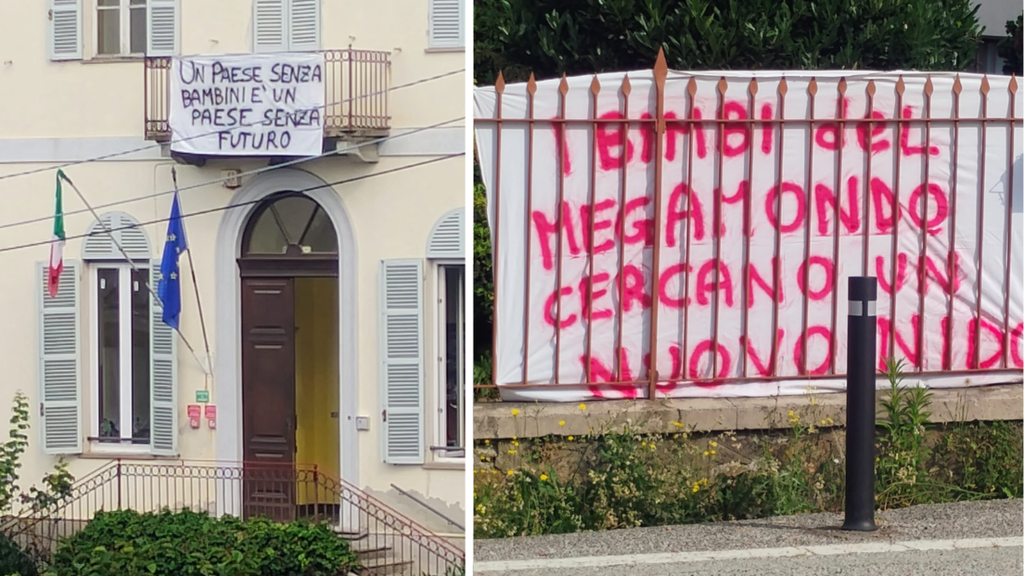 UN PAESE SENZA
BAMBINI E' UN
PAESE SENZA
FUTURO
I BAMBI del
MEGAMONDO
CERCANO UN
NUOVO NIDO